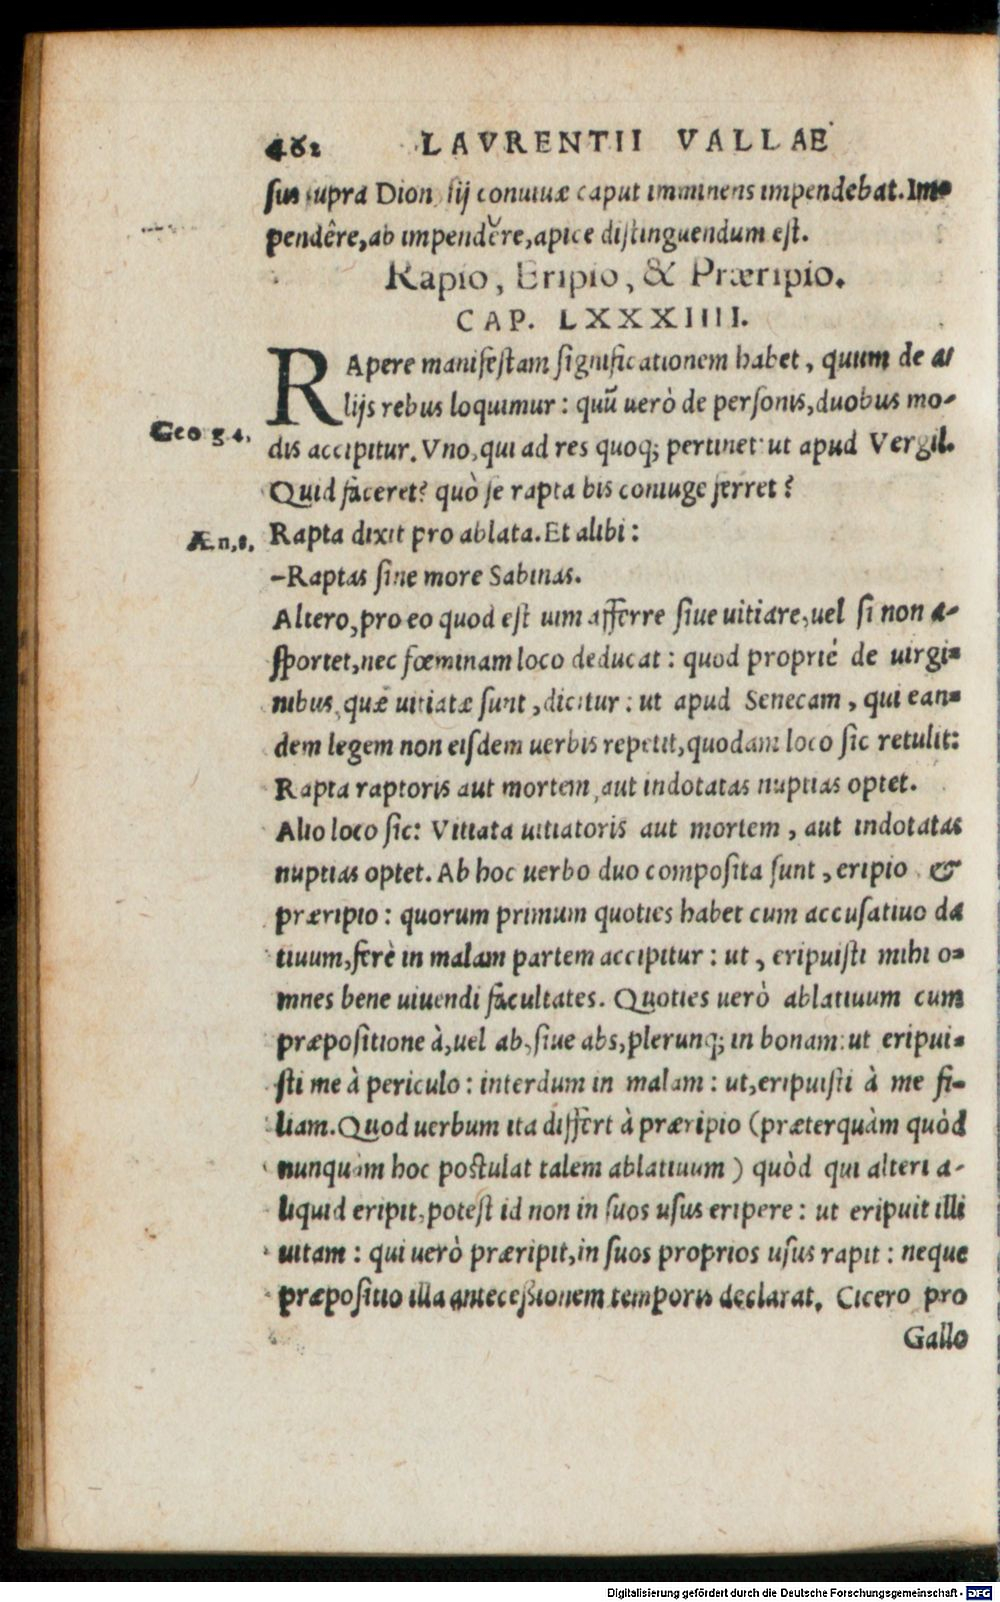 482 LAVRENTII VALLAE
sus supra Dionysij conuiuæ caput imminens impendebat. Im-
pendêre, ab impendĕre, apice distinguendum est.
Rapio, Eripio, & Præripio.
CAP. LXXXIIII.
RApere manifestam significationem habet, quum de a
lijs rebus loquimur: quũ uerò de personis, duobus mo-
Geo g 4. dis accipitur. Vno, qui ad res quoq; pertinet: ut apud Vergil.
Quid faceret? quò se rapta bis coniuge ferret?
Æn. 8. Rapta dixit pro ablata. Et alibi:
-Raptas sine more Sabinas.
Altero, pro eo quod est uim afferre siue uitiare, uel si non a-
sportet, nec fœminam loco deducat: quod proprié de uirgi-
nibus, quæ uitiatæ sunt, dicitur: ut apud Senecam, qui ean-
dem legem non eisdem uerbis repetit, quodam loco sic retulit:
Rapta raptoris aut mortem, aut indotatas nuptias optet.
Alio loco sic: Vitiata uitiatoris aut mortem, aut indotatas
nuptias optet. Ab hoc uerbo duo composita sunt, eripio &
præripio: quorum primum quoties habet cum accusatiuo da
tiuum, ferè in malam partem accipitur: ut, eripuisti mihi o-
mnes bene uiuendi facultates. Quoties uerò ablatiuum cum
præpositione à, uel ab, siue abs, plerunq; in bonam: ut eripui-
sti me à periculo: interdum in malam: ut, eripuisti à me fi-
liam. Quod uerbum ita differt à præripio (præterquàm quòd
nunquam hoc postulat talem ablatiuum) quòd qui alteri a-
liquid eripit, potest id non in suos usus eripere: ut eripuit illi
uitam: qui uerò præripit, in suos proprios usus rapit: neque
præpositio illa antecessionem temporis declarat. Cicero pro
Gallo
Digitalisierung gefördert durch die Deutsche Forschungsgemeinschaft - DFG